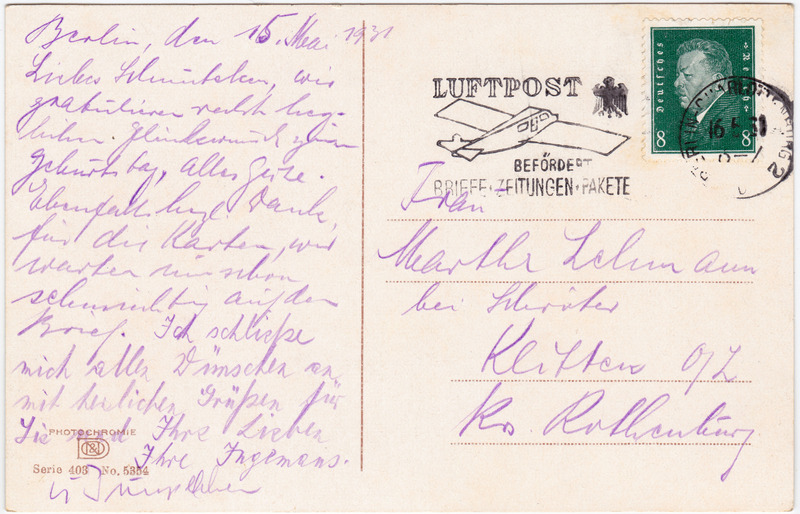 Berlin, den 15. Mai 1931
Liebes Schnutchen, wir
gratulieren recht herz-
lichen Glückwunsch zum
Geburtstag, alles Gute.
Ebenfalls hzl. Dank
für die Karten, wir
warten nun schon
sehnsüchtig auf den
Brief. Ich schließe
mich allen Wünschen an
mit herzlichen Grüßen für
Sie und Ihre Lieben
Ihre
PHOTOCHROMIE
Serie 403 No. 5354
LUFTPOST
BEFÖRDERT
BRIEFE·ZEITUNGEN·PAKETE
Deutsches Reich
8 8
BERLIN-CHARLOTTENBURG 2
16.5.31
Frau
Martha Lehmann
bei Schröter
Klitten O/L
Krs Rothenburg